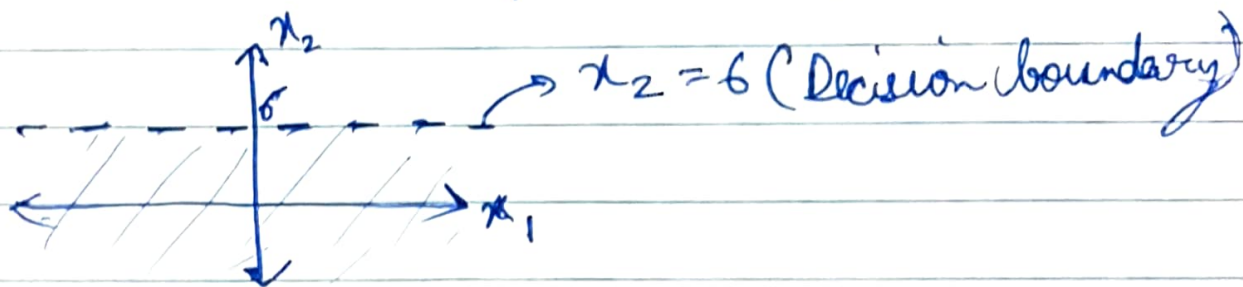 x₂
6
x₂ = 6 (Decision boundary)
x₁